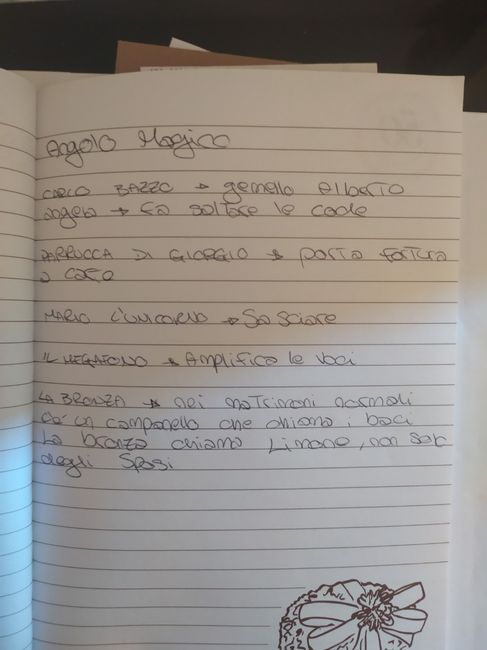 Angolo Magico
CARLO BAZZO → gemello Alberto
Angela → fa saltare le code
PARRUCCA DI GIORGIO → porta fortuna
a caso
MARIO L'UNICORNO → Sa Sciare
IL MEGAFONO → Amplifica le voci
LA BRONZA → nei matrimoni normali
c'è un campanello che chiama i baci
La bronza chiama Limone, non solo
degli Sposi